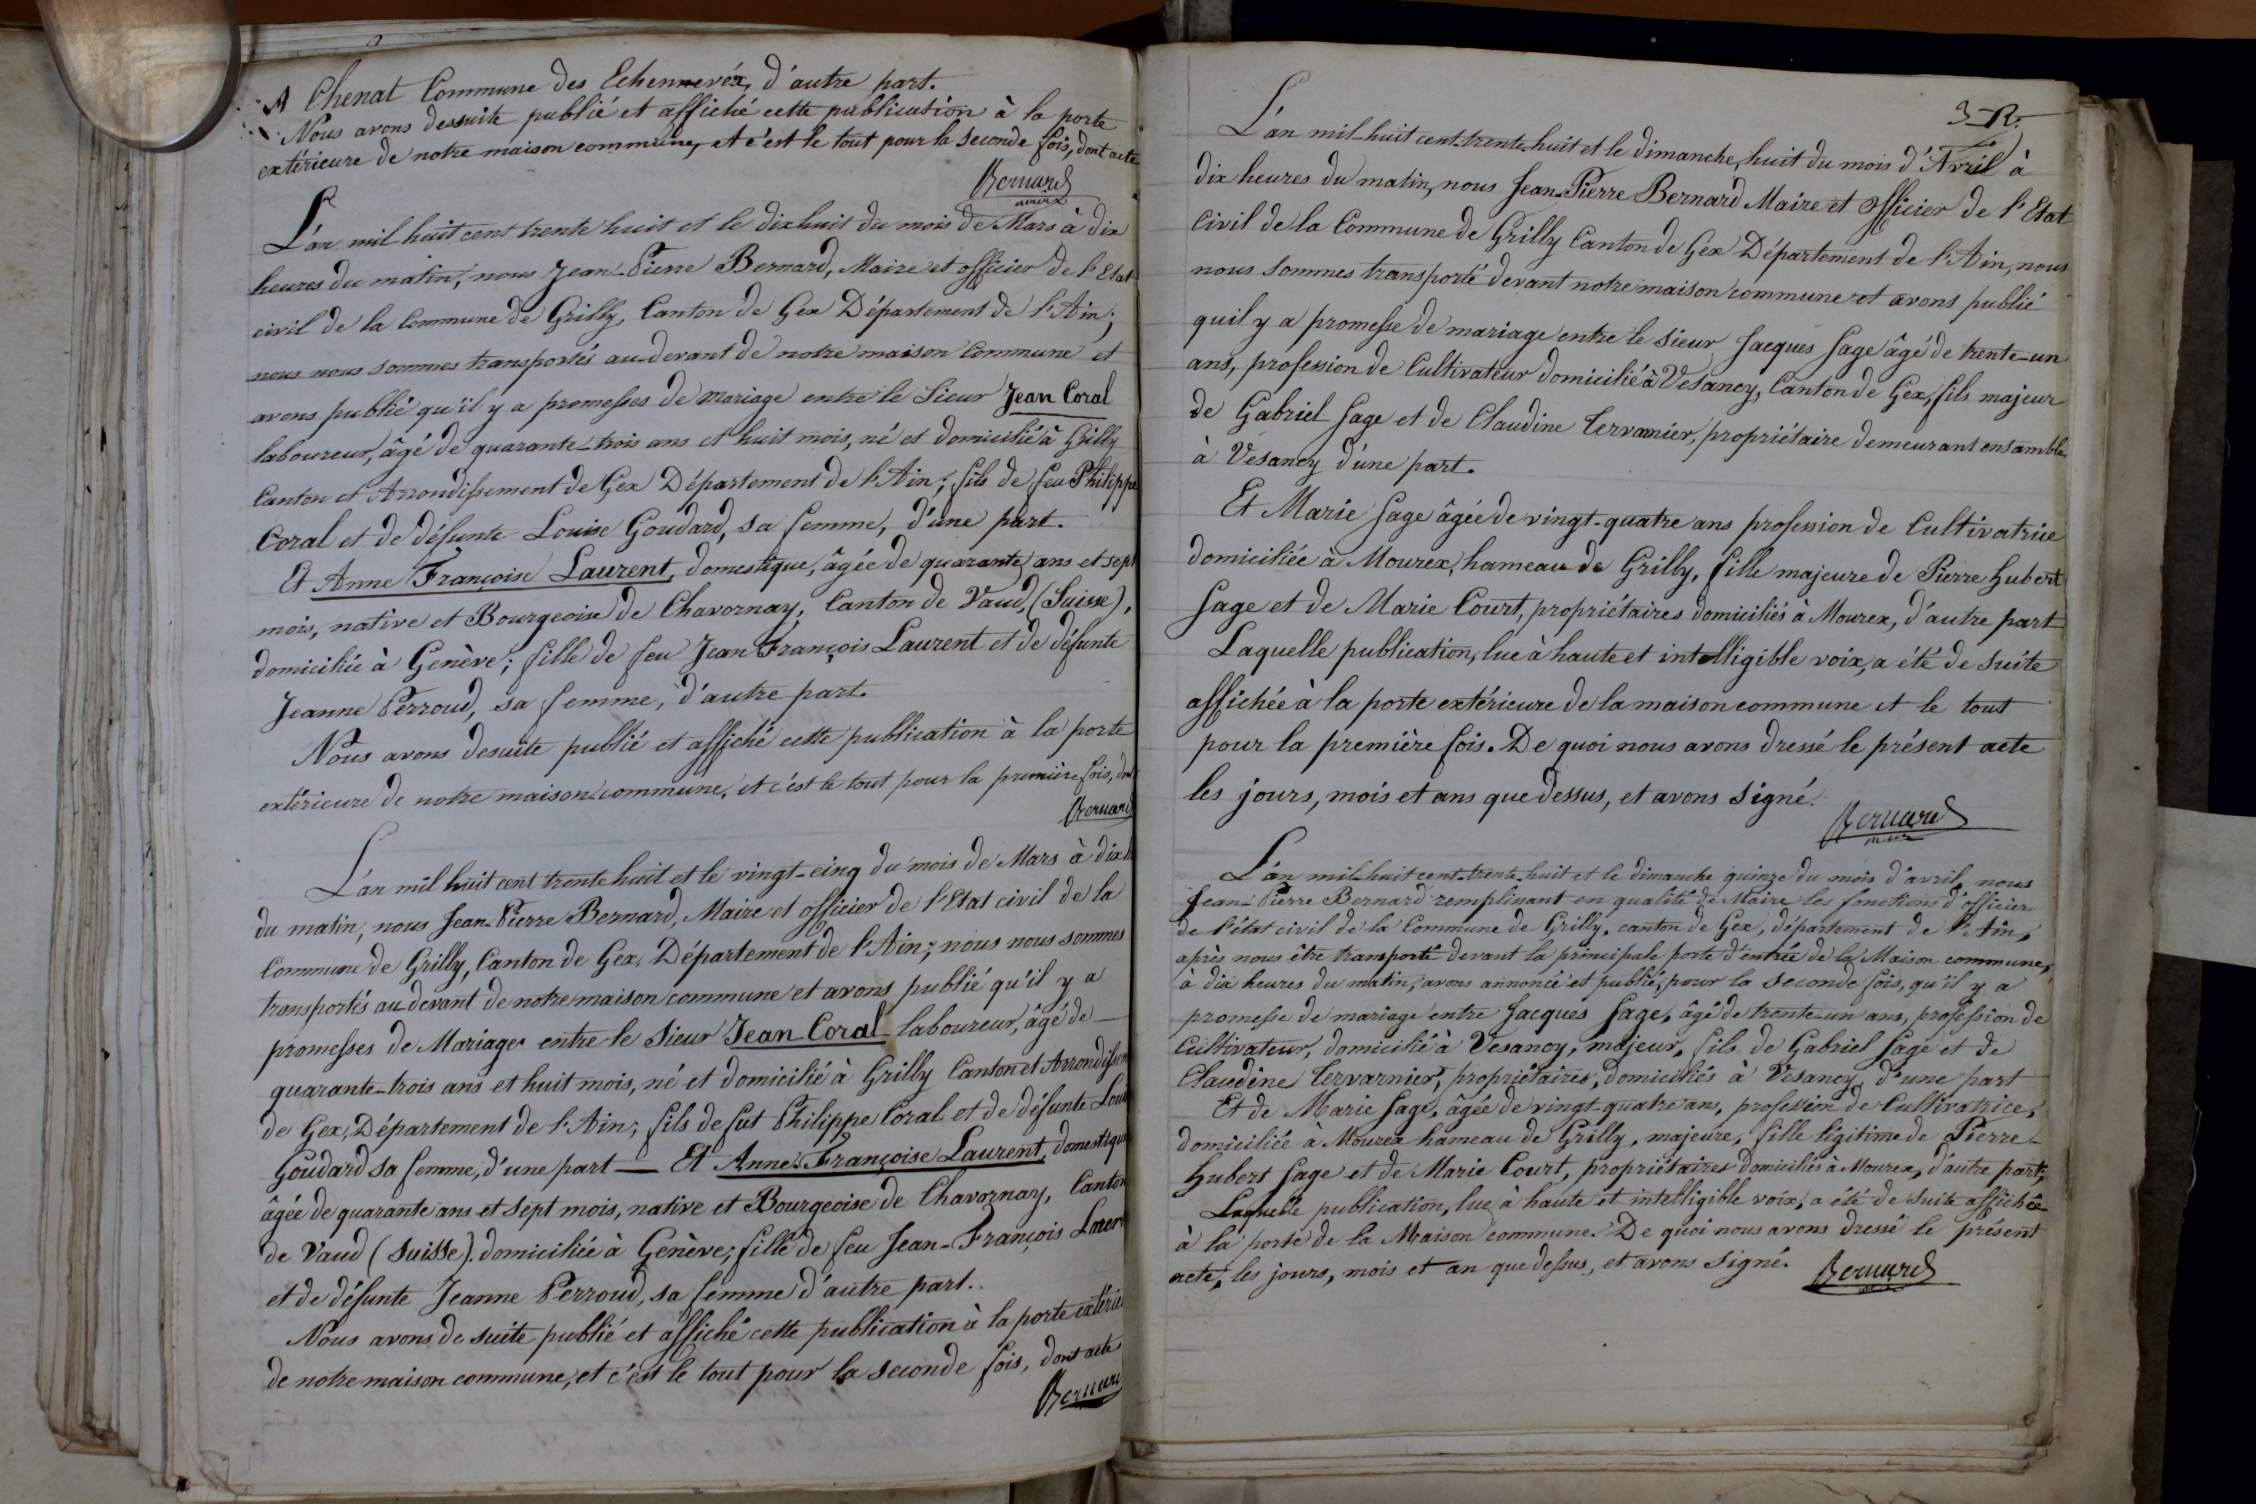 A Chenat Commune des Echenevéx, d'autre part.
Nous avons dessuite publié et affiché cette publication à la porte
extérieure de notre maison commune, et c'est le tout pour la seconde fois, dont acte
Bernard
maire
L'an mil huit cent trente huit et le dixhuit du mois de Mars à dix
heures du matin, nous Jean-Pierre Bernard, Maire et officier de l'Etat
civil de la Commune de Grilly, Canton de Gex Département de l'Ain;
nous nous sommes transportés au-devant de notre maison Commune et
avons publié qu'il y a promesses de Mariage entre le Sieur Jean Coral
laboureur, âgé de quarante-trois ans et huit mois, né et domicilié à Grilly
Canton et Arrondissement de Gex Département de l'Ain; fils de feu Philippe
Coral et de défunte Louise Goudard, sa femme, d'une part.
Et Anne Françoise Laurent, domestique, âgée de quarante ans et sept
mois, native et Bourgeoise de Chavornay, Canton de Vaud, (Suisse),
domiciliée à Genève; fille de feu Jean François Laurent et de défunte
Jeanne Perroud, sa femme, d'autre part.
Nous avons desuite publié et affiché cette publication à la porte
extérieure de notre maison commune, et c'est le tout pour la première fois,
Bernard
L'an mil huit cent trente huit et le vingt-cinq du mois de Mars à dix
du matin, nous Jean-Pierre Bernard, Maire et officier de l'Etat civil de la
Commune de Grilly, Canton de Gex, Département de l'Ain; nous nous sommes
transportés au devant de notre maison commune et avons publié qu'il y a
promesses de Mariage entre le Sieur Jean Coral laboureur, âgé de
quarante-trois ans et huit mois, né et domicilié à Grilly Canton et Arrondissem
de Gex, Département de l'Ain; fils de fut Philippe Coral et de défunte Loui
Goudard sa femme, d'une part — Et Anne-Françoise Laurent, domestique
âgée de quarante ans et sept mois, native et Bourgeoise de Chavornay, Canton
de Vaud (Suisse). domiciliée à Genève; fille de feu Jean-François Lauren
et de défunte Jeanne Perroud, sa femme d'autre part.
Nous avons de suite publié et affiché cette publication à la porte extérieu
de notre maison commune, et c'est le tout pour la seconde fois, dont acte
Bernard
3 R.
L'an mil-huit cent-trente-huit et le dimanche, huit du mois d'Avril à
dix heures du matin, nous Jean-Pierre Bernard Maire et officier de l'Etat
Civil de la Commune de Grilly Canton de Gex Département de l'Ain, nous
nous sommes transporté devant notre maison commune et avons publié
quil y a promesse de mariage entre le sieur Jacques Sage âgé de trente-un
ans, profession de Cultivateur domicilié à Vesancy, Canton de Gex, fils majeur
de Gabriel Sage et de Claudine Tervarnier, propriétaire demeurant ensamble
à Vesancy d'une part.
Et Marie Sage âgée de vingt-quatre ans profession de Cultivatrice
domiciliée à Mourex, hameau de Grilly, fille majeure de Pierre Hubert
Sage et de Marie Court, propriétaires domiciliés à Mourex, d'autre part
Laquelle publication, lue à haute et intelligible voix, a été de suite
affichée à la porte extérieure de la maison commune et le tout
pour la première fois. De quoi nous avons dressé le présent acte
les jours, mois et ans que dessus, et avons signé.
Bernard
maire
L'an mil-huit cent-trente-huit et le dimanche quinze du mois d'avril, nous
Jean-Pierre Bernard remplissant en qualité de Maire les fonctions d'officier
de l'état civil de la Commune de Grilly, canton de Gex, département de l'Ain,
après nous être transporté devant la principale porte d'entrée de la Maison commune,
à dix heures du matin, avons annoncé et publié, pour la seconde fois, qu'il y a
promesse de mariage entre Jacques Sage, âgé de trente-un ans, profession de
Cultivateur, domicilié à Vesancy, majeur, fils de Gabriel Sage et de
Claudine Tervarnier, propriétaires, domiciliés à Vesancy, d'une part
Et de Marie Sage, âgée de vingt-quatre ans, profession de Cultivatrice,
domiciliée à Mourex hameau de Grilly, majeure, fille légitime de Pierre-
Hubert Sage et de Marie Court, propriétaires domiciliés à Mourex, d'autre part;
Laquelle publication, lue à haute et intelligible voix, a été de suite affichée
à la porte de la Maison commune. De quoi nous avons dressé le présent
acte, les jours, mois et an que dessus, et avons signé.
Bernard
maire